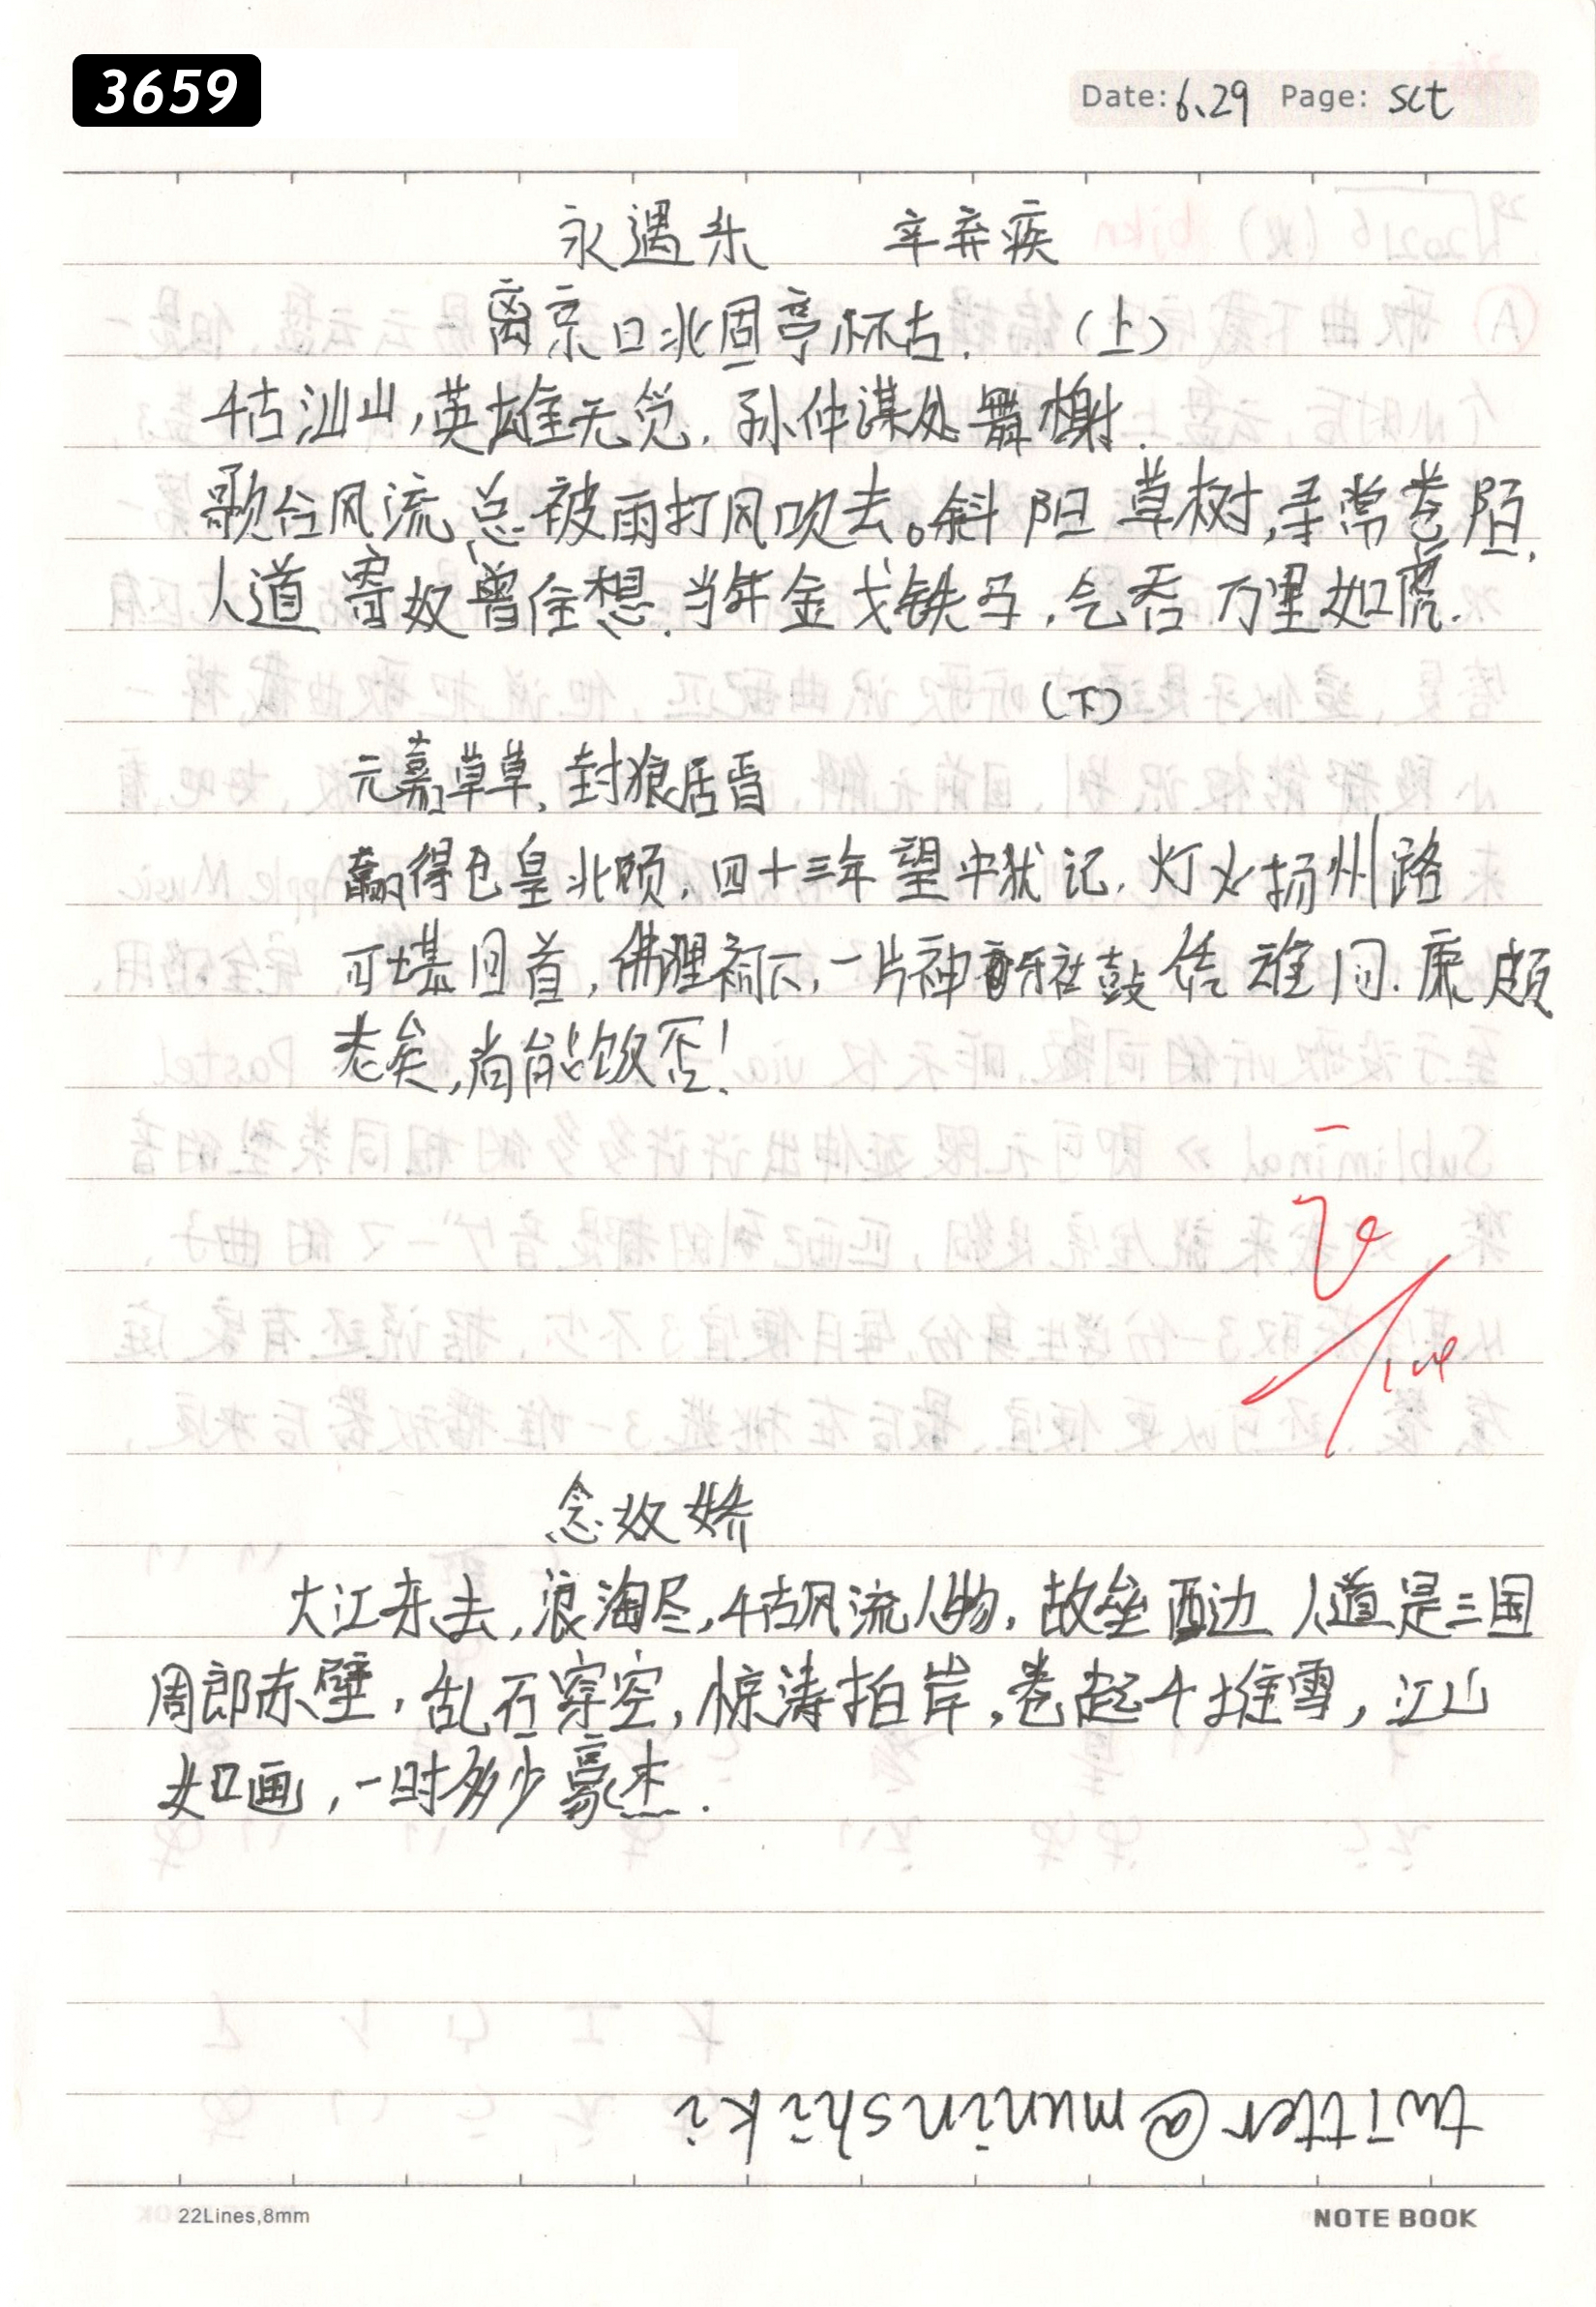 3659
Date: 6.29 Page: sct
永遇乐 辛弃疾
离京口北固亭怀古. (上)
千古汕山,英雄无觉,孙仲谋处舞榭.
歌台风流总被雨打风吹去。斜阳草树,寻常巷陌,
人道寄奴曾住想.当年金戈铁马,气吞万里如虎.
(下)
元嘉草草,封狼居胥
赢得仓皇北顾,四十三年望中犹记,灯火扬州路
可堪回首,佛狸祠下,一片神鸦社鼓凭谁问.廉颇
老矣,尚能饭否!
念奴娇
大江东去,浪淘尽,千古风流人物,故垒西边人道是三国
周郎赤壁,乱石穿空,惊涛拍岸,卷起千堆雪,江山
如画,一时多少豪杰.
twitter@muninshiki
22Lines,8mm NOTE BOOK